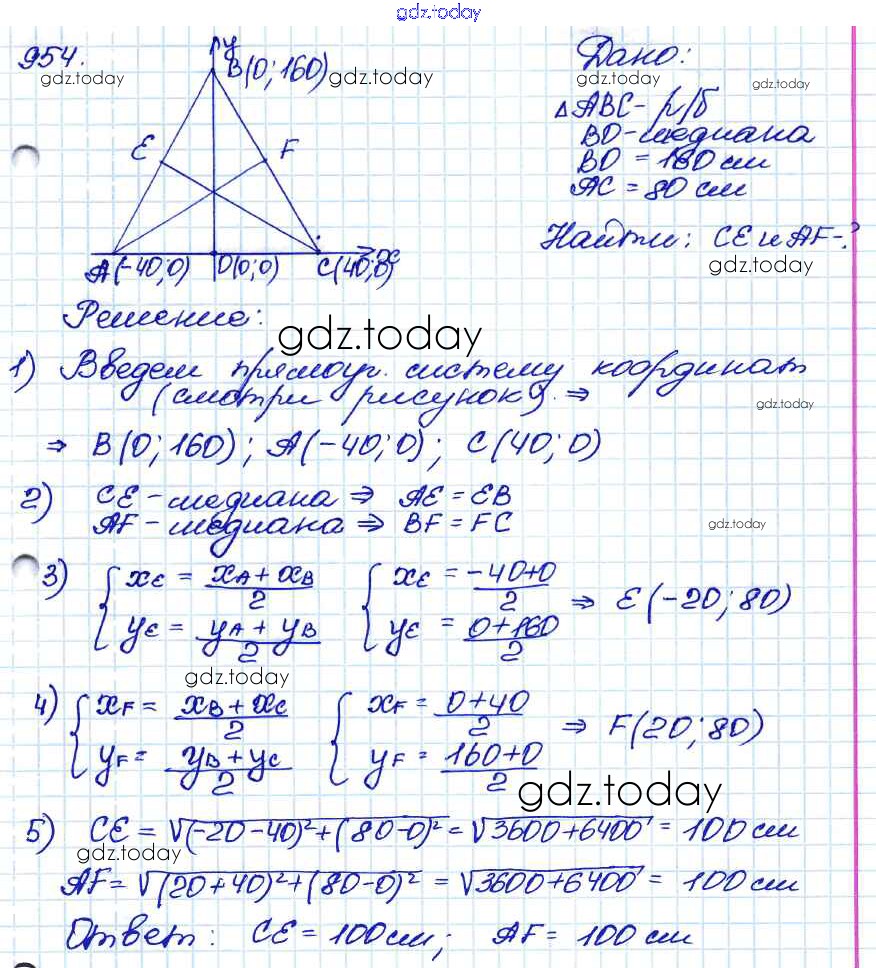 gdz.today
954.
gdz.today
y
B(0; 160)
gdz.today
E
F
A(-40;0)
D(0;0)
C(40;0)
x
Дано:
gdz.today
gdz.today
△ABC - р/б
BD - медиана
BD = 160 см
AC = 80 см
Найти: CE и AF - ?
gdz.today
Решение:
gdz.today
1) Введем прямоуг. систему координат
(смотри рисунок). ⇒
gdz.today
⇒ B(0; 160); A(-40; 0); C(40; 0)
2) CE - медиана ⇒ AE = EB
AF - медиана ⇒ BF = FC
gdz.today
3) { xE = (xA + xB)/2 { xE = (-40+0)/2 ⇒ E(-20; 80)
yE = (yA + yB)/2 yE = (0+160)/2
gdz.today
4) { xF = (xB + xC)/2 { xF = (0+40)/2 ⇒ F(20; 80)
yF = (yB + yC)/2 yF = (160+0)/2
gdz.today
5) CE = √((-20-40)²+(80-0)²) = √(3600+6400) = 100 см
gdz.today
AF = √((20+40)²+(80-0)²) = √(3600+6400) = 100 см
Ответ: CE = 100 см; AF = 100 см